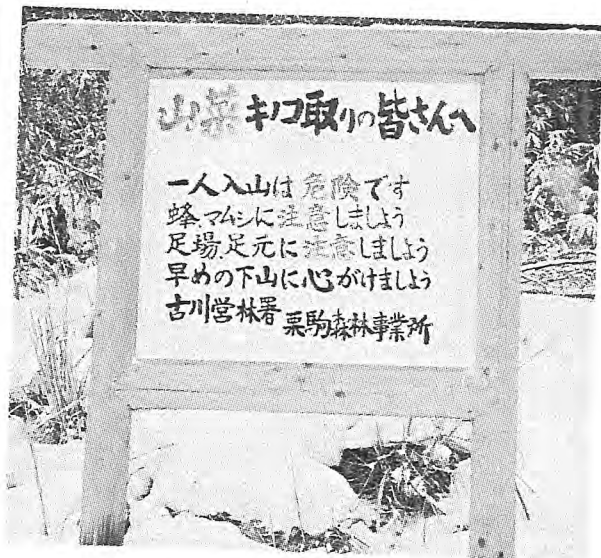 山菜キノコ取りの皆さんへ
一人入山は危険です
蜂マムシに注意しましよう
足場足元に注意しましよう
早めの下山に心がけましよう
古川営林署 栗駒森林事業所